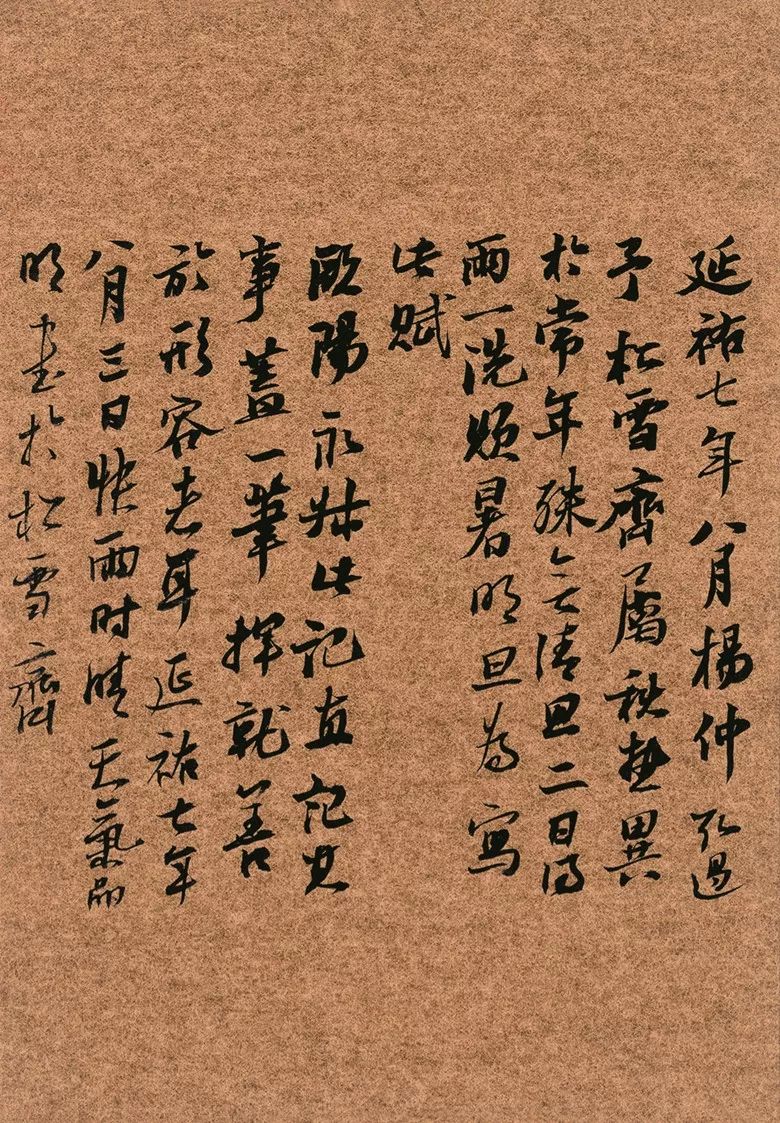 延祐七年八月楊仲弘過
予松雪齋屬秋熱異
於常年殊無清思二日得
雨一洗煩暑明旦為寫
此賦
歐陽永叔此記直記其
事蓋一筆揮就善
於形容者耳延祐七年
八月三日快雨时晴天氣朗
明書於松雪齋